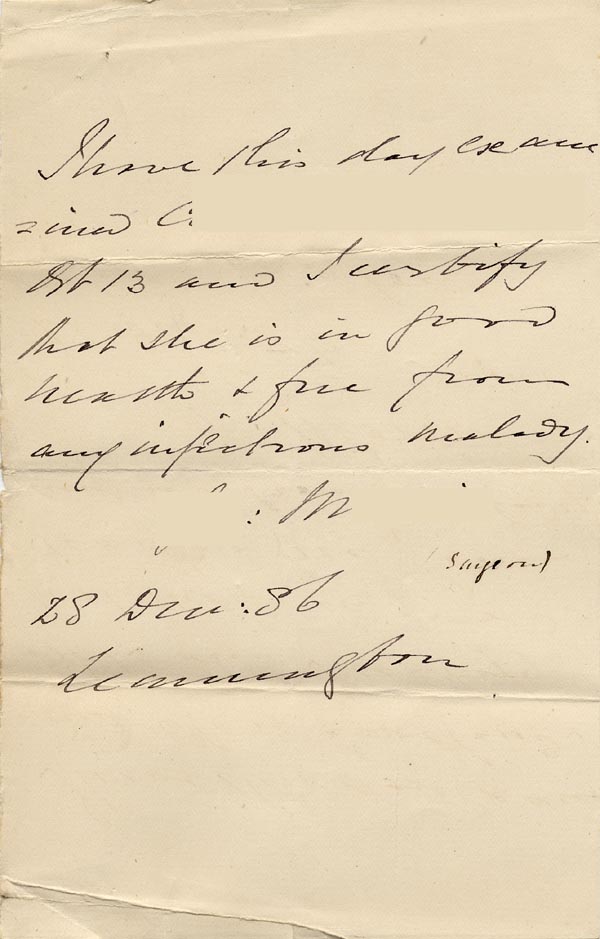 I have this day exam
=ined C.
æt 13 and I certify
that she is in good
health & free from
any infectious malady.
: M
(Surgeon)
28 Dec: 86
Leamington